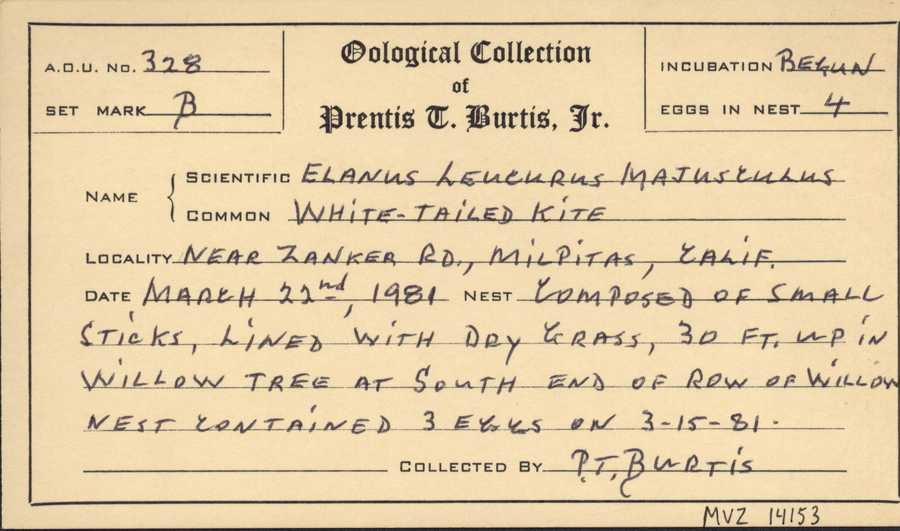 A.O.U. No. 328
SET MARK B
Oological Collection
of
Prentis T. Burtis, Jr.
INCUBATION BEGUN
EGGS IN NEST 4
NAME
SCIENTIFIC ELANUS LEUCURUS MAJUSCULUS
COMMON WHITE-TAILED KITE
LOCALITY NEAR ZANKER RD., MILPITAS, CALIF.
DATE MARCH 22nd, 1981 NEST COMPOSED OF SMALL
STICKS, LINED WITH DRY GRASS, 30 FT. UP IN
WILLOW TREE AT SOUTH END OF ROW OF WILLOW
NEST CONTAINED 3 EGGS ON 3-15-81.
COLLECTED BY P.T. BURTIS
MVZ 14153